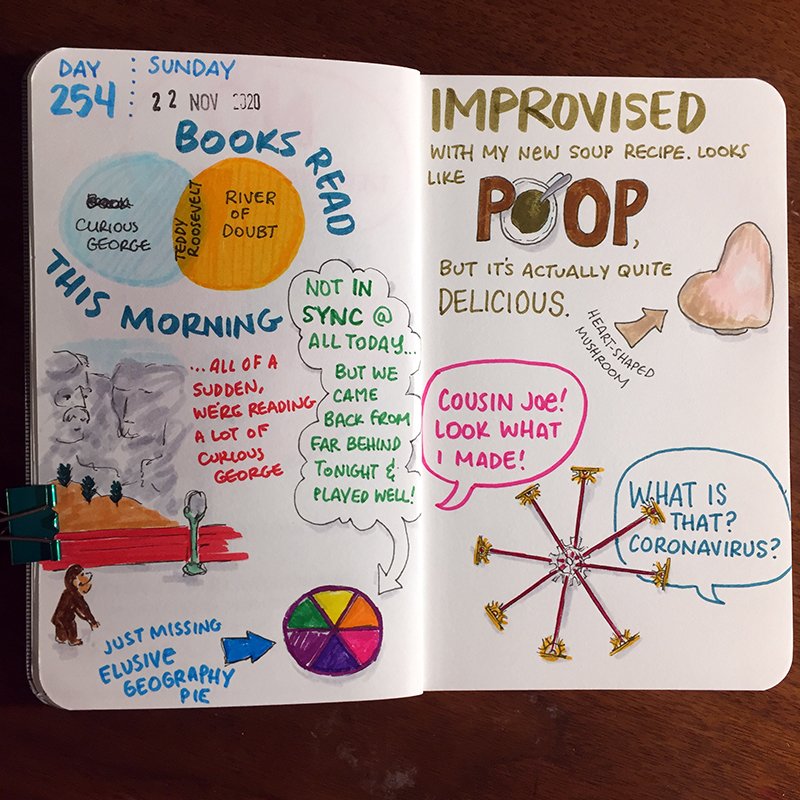 DAY
254
SUNDAY
22 NOV 2020
BOOKS READ
THIS MORNING
CURIOUS
GEORGE
TEDDY
ROOSEVELT
RIVER
OF
DOUBT
...ALL OF A
SUDDEN,
WE'RE READING
A LOT OF
CURIOUS
GEORGE
NOT IN
SYNC @
ALL TODAY...
BUT WE
CAME
BACK FROM
FAR BEHIND
TONIGHT &
PLAYED WELL!
JUST MISSING
ELUSIVE
GEOGRAPHY
PIE
IMPROVISED
WITH MY NEW SOUP RECIPE. LOOKS
LIKE POOP,
BUT IT'S ACTUALLY QUITE
DELICIOUS.
HEART-SHAPED
MUSHROOM
COUSIN JOE!
LOOK WHAT
I MADE!
WHAT IS
THAT?
CORONAVIRUS?